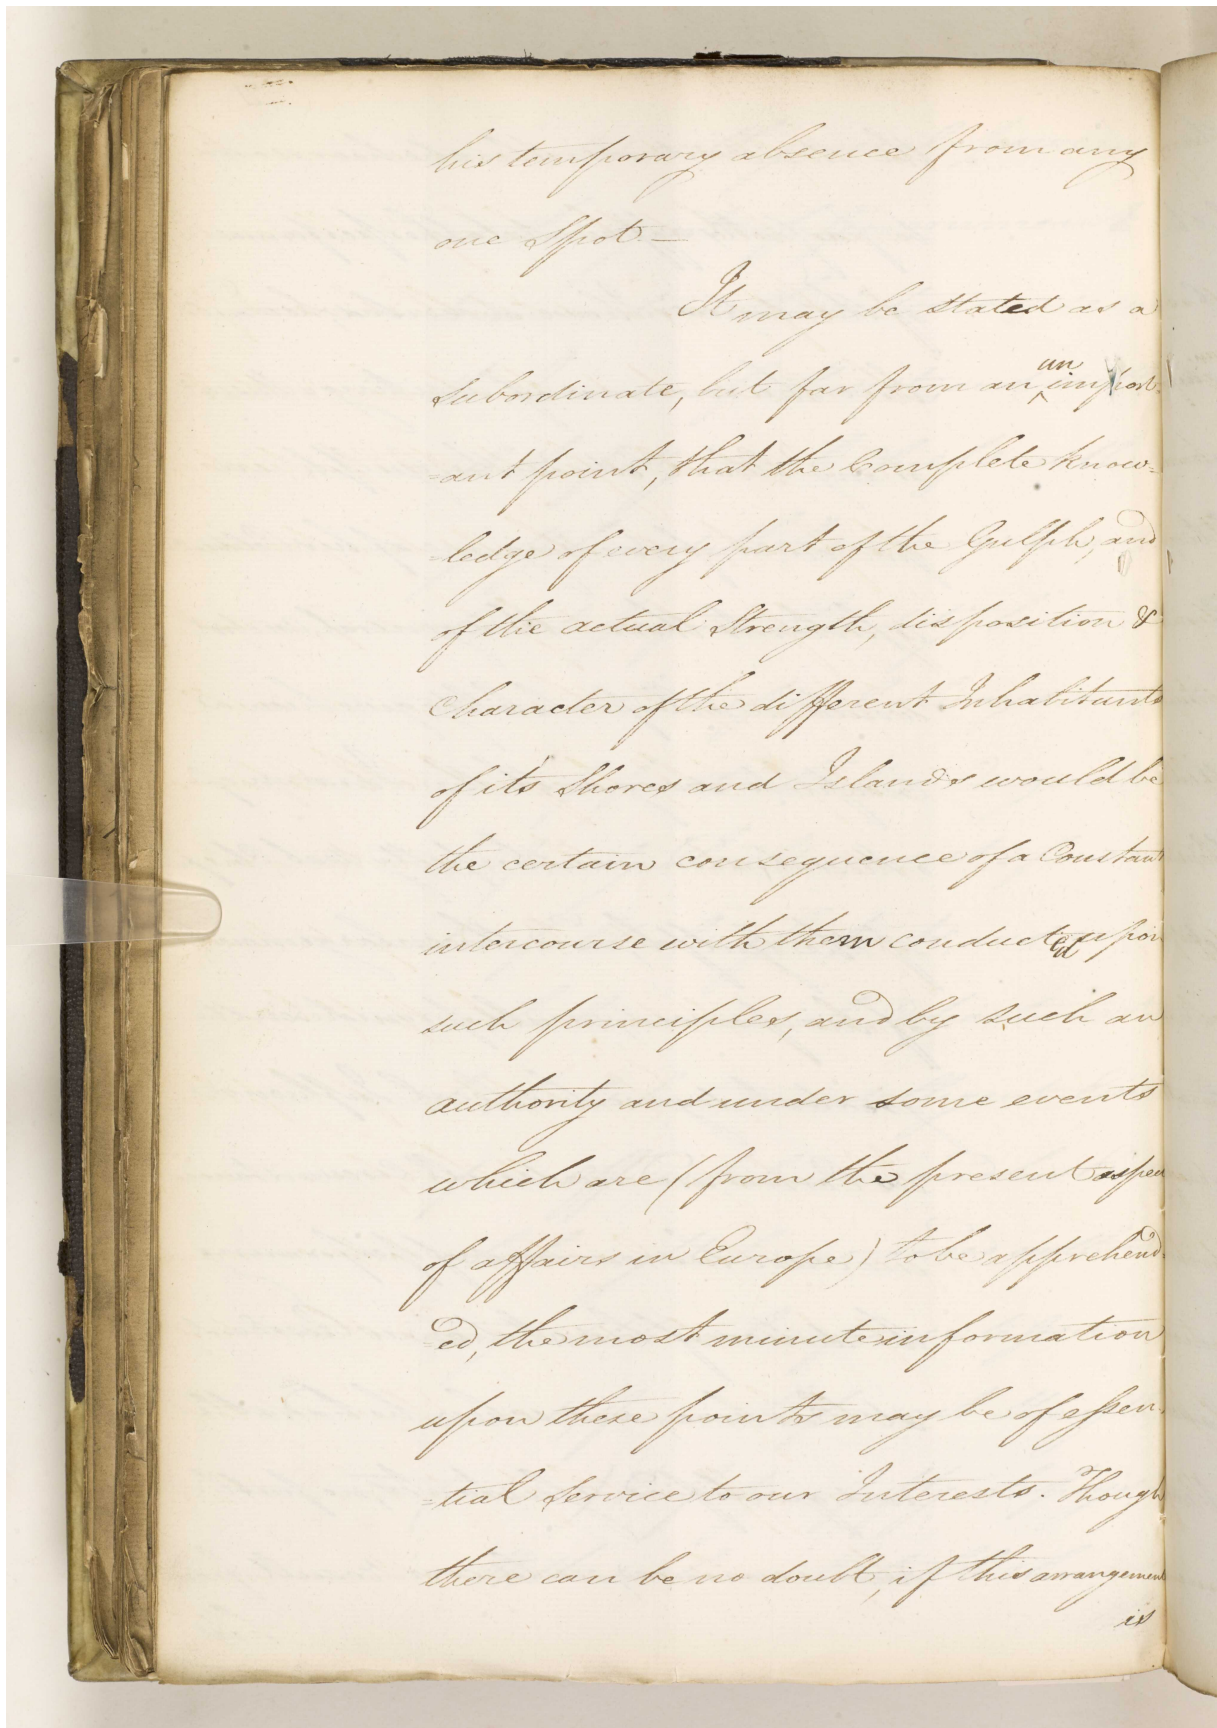 his temporary absence from any
one Spot. —
It may be stated as a
un
subordinate, but far from an ^ import
=ant point, that the Complete know=
=ledge of every part of the Gulph, and
of the actual Strength, disposition &
Character of the different Inhabitants
of it's Shores and Islands would be
the certain consequence of a Constant
intercourse with them conducted upon
such principles, and by such an
authority and under some events
which are (from the present aspect
of affairs in Europe) to be apprehend
=ed, the most minute information
upon these points may be of essen=
=tial Service to our Interests. Though
there can be no doubt, if this arrangement
is